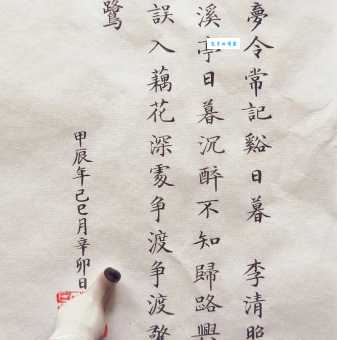 夢令常記谿日暮 李清照
溪亭日暮沉醉不知歸路興
誤入藕花深處争渡争渡
鷺
甲辰年己巳月辛卯日